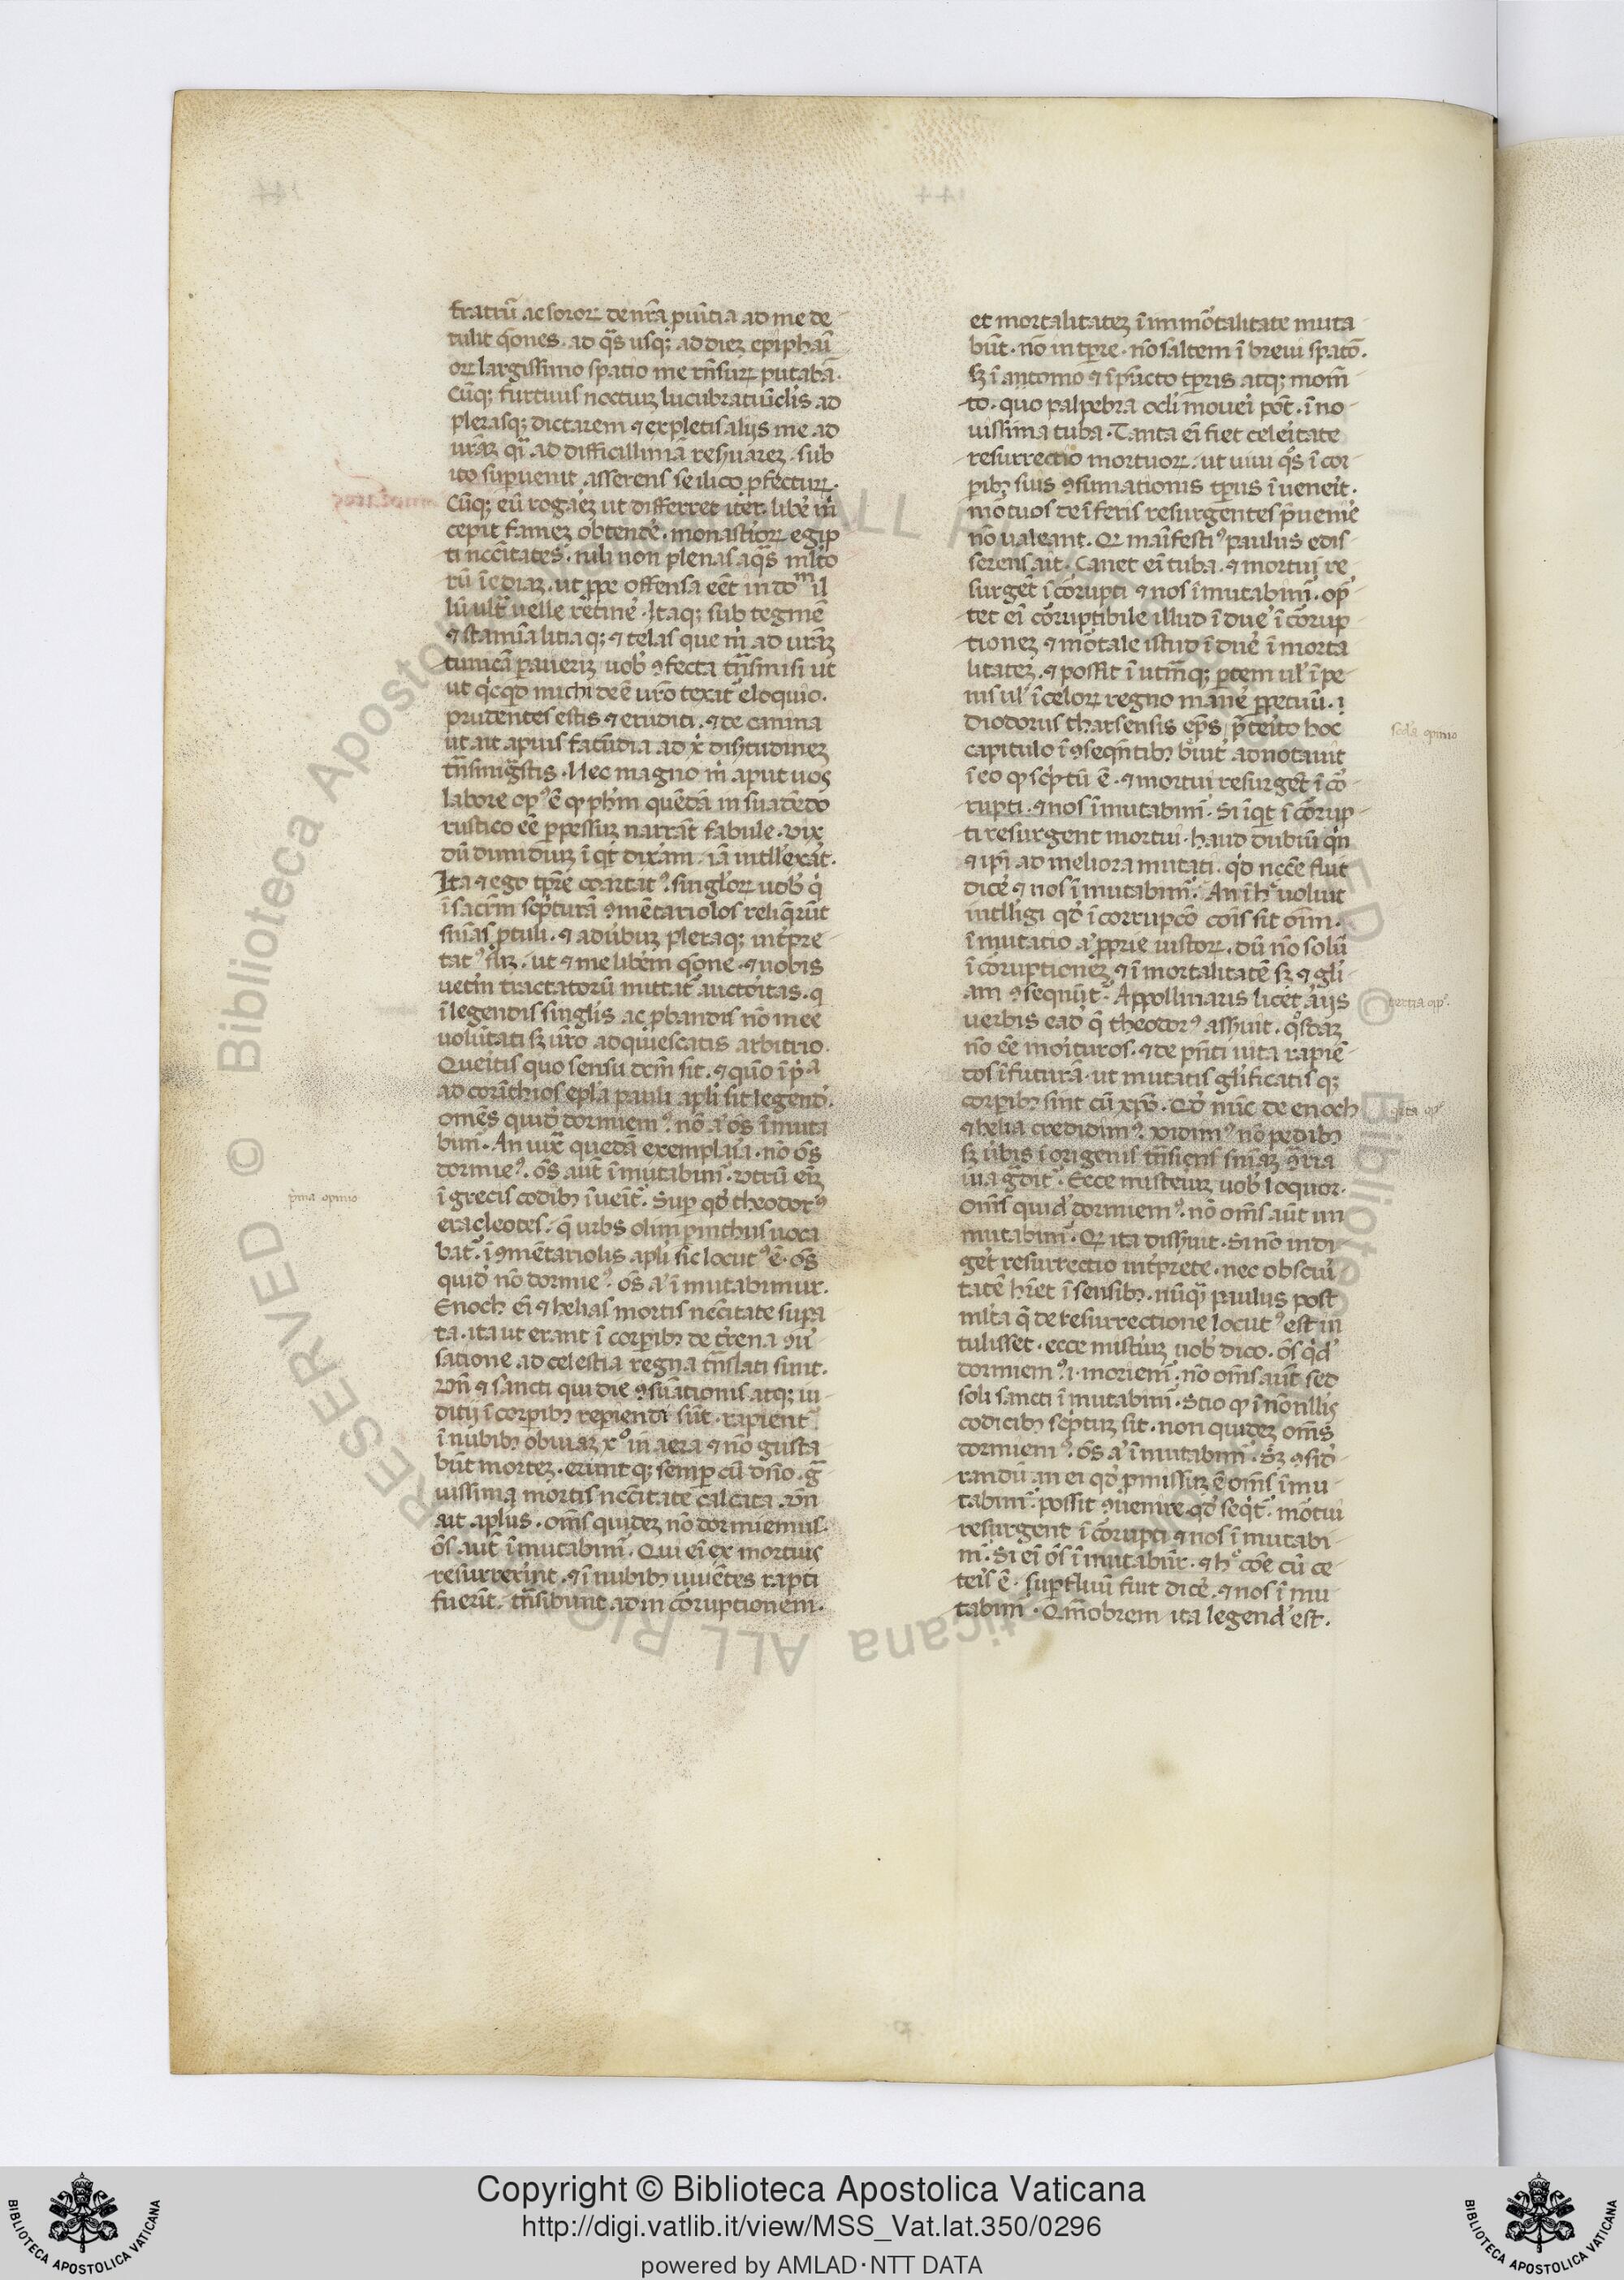 fratrū ac soror̄ de nr̄a ꝓuīcia ad me de
tulit q̄ōnes. ad q̄s usq; ad dieȝ epiphaī
or̄ largissimo spatio me rn̄sur̄ putabā.
Cūq; furtiuis noctiuȝ lucubratiūclis ad
plerasq; dictarem ⁊ expletis alijs me ad
ur̄aȝ q̄i ad difficillimā res̓uareȝ. sub
ito supuenit asserens se ilico ꝓfectur̄.
Cūq; eū rogar̄eȝ ut differret iter. libẻ m̄
cepit fameȝ obtendẻ. monast̓ior̄ egip
ti nccītates. nili non plenas aq̄s. ml̓to
rū īediaȝ. ut ꝓpe offensa eēt in do^m il
lū ult̓ uelle retinẻ. Itaq; sub tegmē
⁊ stamīa litiaq; ⁊ telas que m̄ ad ur̄aȝ
tunicā ꝑaueriȝ uob̓ ꝯfecta tn̄smisi ut
ut q̓cqd michi deē ur̄o texat̓ eloquio.
prudentes estis ⁊ eruditi. ⁊ de canina
ut ait apuis facūdia ad xp̄i dis̓tudineȝ
tn̄smig̓stis. Nec magno m̄ aput uos
labore op⁹ ē ꝙ ph̄m quēdā in suadēdo
rustico eē ꝑpessuȝ narrāt fabule. vix
dū dimidiuȝ īq̓t dixẻam. iā intll̓exẻat.
Ita ⁊ ego tp̄re coartat⁹. singl̓or̄ uob̓ q̓
ī sacrȧm scpturā ꝯmētariolos reliq̄rūt
sn̄ias ꝓtuli. ⁊ adūbuȝ pleraq; int̓pre
tat⁹ suȝ. ut ⁊ me libẻm q̄ōne. ⁊ uobis
uetẻm tractatorū mittat̓ auctoritas. q
ī legendis singl̓is ac ꝓbandis nō mee
uolūtati sȝ ur̄o adquiescatis arbitrio.
Quei̓tis quo sensu dc̄m sit. ⁊ quō ī p̄^a
ad corīthios epl̓a pauli apl̓i sit legend̓.
omēs quid̓ dormiem⁹. nō a͛ ōs īmuta
bim̓. An iux̄ quedā exempla̓ia. nō ōs
dormie⁹. ōs aut̄ īmutabim̓. vtrū eīȝ
ī grecis codib; īueit̓. Suꝑ qd̓ theodor⁹
eracleotes. q̄ urbs olim pinthus uoca
bat̓. ī ꝯmētariolis apl̓i sic locut⁹ ē. ōs
quid̓ nō dormie⁹. ōs a͛ īmutabimur.
Enoch eī ⁊ helias mortis necītate supa
ta. ita ut erant ī corꝑib; de tr̓ena ꝯu̓
satione ad celestia regna tn̄slati sunt.
Vn̄ ⁊ sancti qui die ꝯsūationis atq; iu
ditij ī corꝑib; repiendi sūt. rapient̓
ī nubib; obuiaȝ x^o in aera ⁊ nō gusta
būt morteȝ. erunt q; semꝑ cū dn̄o. g̓
uissima mortis nccītate calcata. Vn̄
ait aplus. om̄s quideȝ nō dormiemus.
ōs aut̄ īmutabim̓. Qui eī ex mortuis
resurrexi̓nt. ⁊ ī nubib; uiuētes rapti
fuerīt. tn̄sibunt ad in corruptionem.
p̓ma opinio
et mortalitateȝ ī immo͛talitate muta
būt. nō in tp̄re. nō saltem ī breui spatō.
sȝ ī antomo ⁊ ī pūcto tp̄ris atq; mom̄
to. quo palpebra oc̓li mouei̓ pot̄. ī no
uissima tuba. Tanta eī fiet celei̓tate
resurrectio mortuor̄. ut uiui q̓s ī cor
ꝑib; suis ꝯsumationis tp̄us īueneit.
mo͛tuos de īferis resurgentes p̄uenire̓
nō ualeant. Qr̄ maīfesti⁹ paulus edis
serens ait. Canet eī tuba. ⁊ mortui re
surgēt īcorupti ⁊ nos īmutabim̓. op̓
tet eī coruptibile illud īduẻ ī corup
tioneȝ ⁊ mo͛tale istud īduẻ ī morta
litateȝ. ⁊ possit ī utrāq; ꝑtem ul̓ ī pe
nis ul̓ ī celor̄ regno manẻ ꝑpetuū. i
Diodorus tharsensis ep̄s p̄teito hoc
capitulo ī ꝯseqn̄tib; breuit̓ adnotauit
ī eo ꝙ scptū ē. ⁊ mortui resurgēt īco͛
rupti. ⁊ nos īmutabim̓. Si īqt īcorup
ti resurgent mortui. haud dubiū qn̄
⁊ ip̄i ad meliora mutati. qd̓ nccē fuit
dicẻ ⁊ nos īmutabim̓. An ī h^c uoluit
intlligi qd̓ īcorrupcō cōis sit om̄.
īmutatio a͛ ꝓprie iustor̄. dū nō solū
ī coruptioneȝ ⁊ ī mortalitatē sȝ ⁊ gl̓i
am ꝯseqnūt̓. Appollinaris licet alijs
uerbis ead̓ q̄ theodor⁹ assuit. q̓sdaȝ
nō eē mo͛ituros. ⁊ de pn̄ti uita rapiē
dos ī futurā. ut mutatis gl̓ificatis q;
corꝑib; sint cū xp̄o. Qd̓ nūc de enoch
⁊ helia credidim⁹. vidim⁹ nō pedib;
sȝ ūbis ī origenis tn̄siens sn̄iaȝ ꝯria
uia g̓dit̓. Ecce misteiuȝ uob̓ loquor.
Om̄s quid̓ dormiem⁹. nō om̄s aūt im
mutabim̓. Qr̄ ita diss̓uit. Si nō indi
get resurrectio int̓prete. nec obscui̓
tatē hr̄et ī sensib;. nūq̄i paulus post
ml̓ta q̄ de resurrectione locut⁹ est in
tulisset. ecce mist̓iuȝ uob̓ dico. ōs qd̓
dormiem⁹. i. moriem̓. nō om̄s aūt sed
soli sancti īmutabim̓. Scio ꝙ ī nōnllis
codicib; scptuȝ sit. non quideȝ om̄s
dormiem⁹. ōs a͛ īmutabim̓. Sȝ ꝯsid̓
randū an ei qd̓ p̄missuȝ ē om̄s īmu
tabim̓. possit ꝯuenire qd̓ seqt̓. mo͛tui
resurgent īcorupti ⁊ nos īmutabi
m̓. Si eī ōs īmutabūt̓. ⁊ h^c cōe cū ce
teis ē. suꝑfluū fuit dicẻ. ⁊ nos īmu
tabim̓. Qm̄obrem ita legend̓ est.
sc̄da opinio
tertia op⁹.
Copyright © Biblioteca Apostolica Vaticana
http://digi.vatlib.it/view/MSS_Vat.lat.350/0296
powered by AMLAD·NTT DATA
BIBLIOTECA APOSTOLICA VATICANA
BIBLIOTECA APOSTOLICA VATICANA